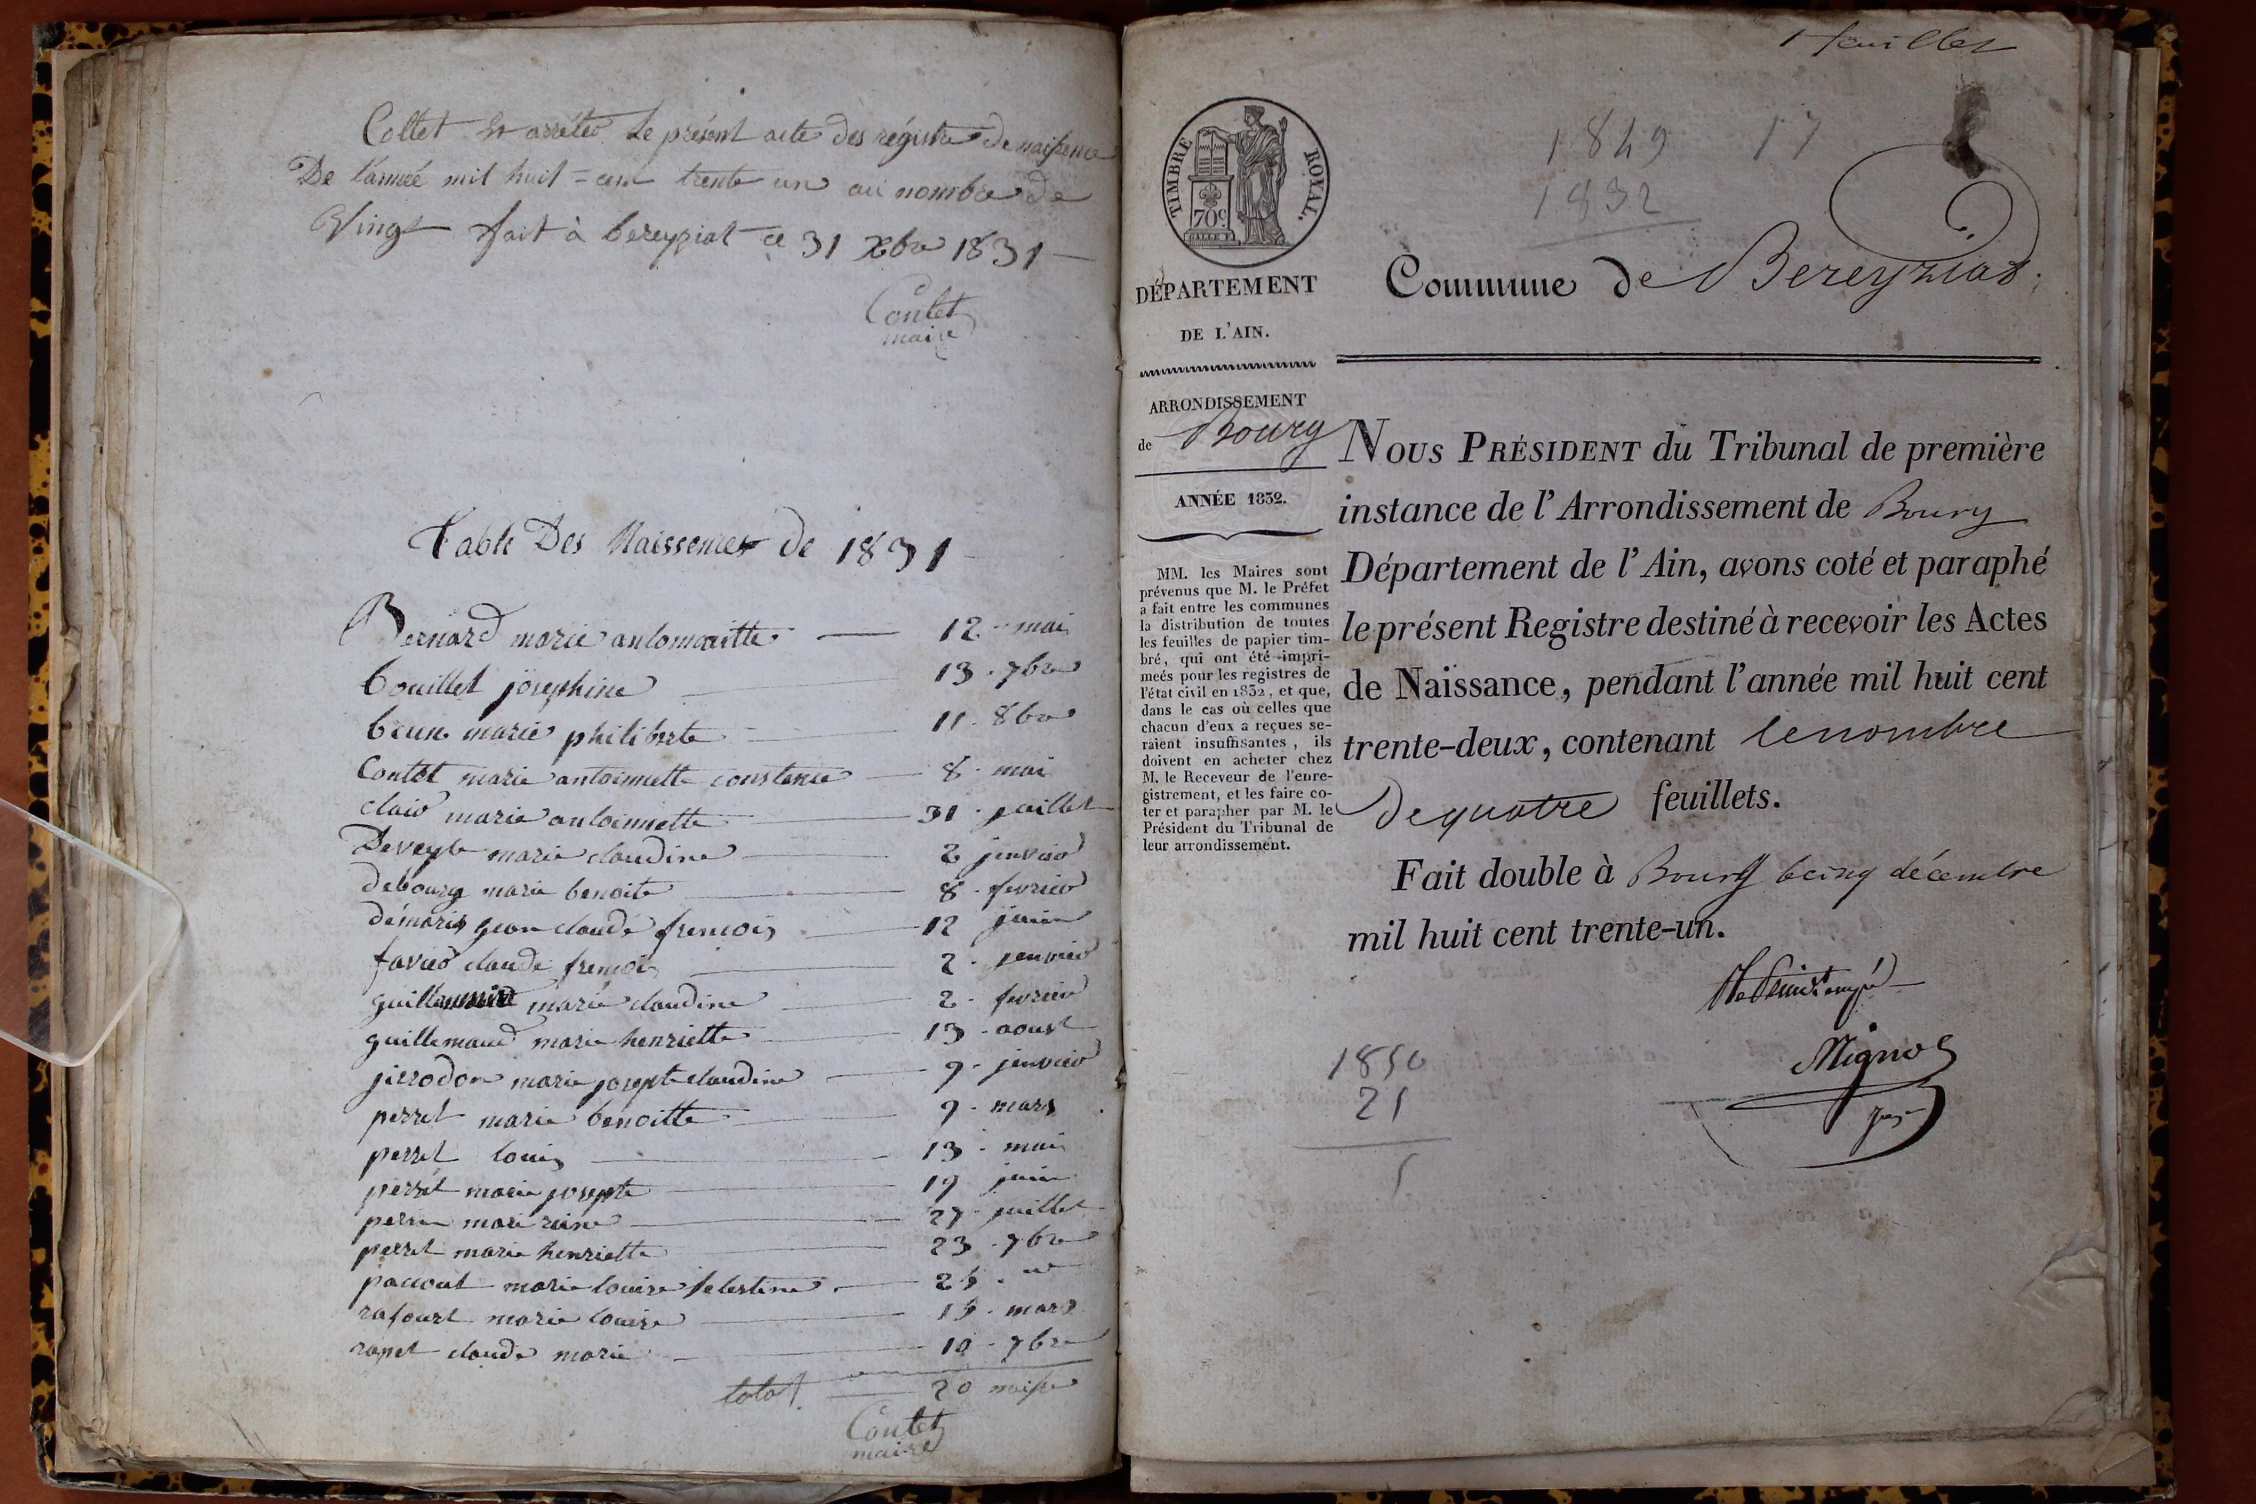 Collet et arrétés le présent acte des régistre de naissence
De l'année mil huit = cent trente un au nombre de
Vingt fait à bereyziat ce 31 Xbre 1831
Coulet
maire
Table Des Naissences de 1831
Bernard marie antoinaitte 12 mai
bouillet joséphine 13 . 7bre
brun marie philiberte 11 . 8bre
Contet marie antoinnette constance 8 . mai
claid marie antoinnette 31 . juillet
Deveyle marie claudine 2 jenvier
debourg marie benoite 8 . fevrier
démaris jean claude frencois 12 juin
favier claude frencois 2 . jenvier
marie claudine 2 . fevrier
guillemaud marie henriette 13 . aoust
pierrodon marie josepte claudine 9 . jenvier
perret marie benoitte 9 . mars
perret louis 13 . mai
perret marie josepte 19 juin
marie reine 27 . juillet
perret marie henriette 23 . 7bre
paccout marie louise selestine
rafourt marie louise mars
rapet claude marie 10 . 7bre
total 20
Coulet
maire
1 feuillet
TIMBRE ROYAL.
70c
1849 17
1832
DÉPARTEMENT
DE L'AIN.
Commune de Bereyziat
ARRONDISSEMENT
de Bourg
ANNÉE 1832.
MM. les Maires sont
prévenus que M. le Préfet
a fait entre les communes
la distribution de toutes
les feuilles de papier tim-
bré, qui ont été impri-
meés pour les registres de
l'état civil en 1832, et que,
dans le cas où celles que
chacun d'eux a reçues se-
raient insuffisantes, ils
doivent en acheter chez
M. le Receveur de l'enre-
gistrement, et les faire co-
ter et parapher par M. le
Président du Tribunal de
leur arrondissement.
NOUS PRÉSIDENT du Tribunal de première
instance de l'Arrondissement de Bourg
Département de l'Ain, avons coté et paraphé
le présent Registre destiné à recevoir les Actes
de Naissance, pendant l'année mil huit cent
trente-deux, contenant le nombre
De quatre feuillets.
Fait double à Bourg le cinq décembre
mil huit cent trente-un.
1850
21